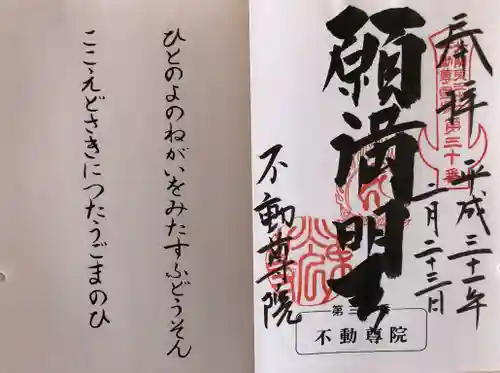 奉拝
平成三十一年
二月二十三日
願満明王
不動尊院
第三十番
不動尊院
ひとのよのねがいをみたすふどうそん
ここゑどさきにつたうごまのひ